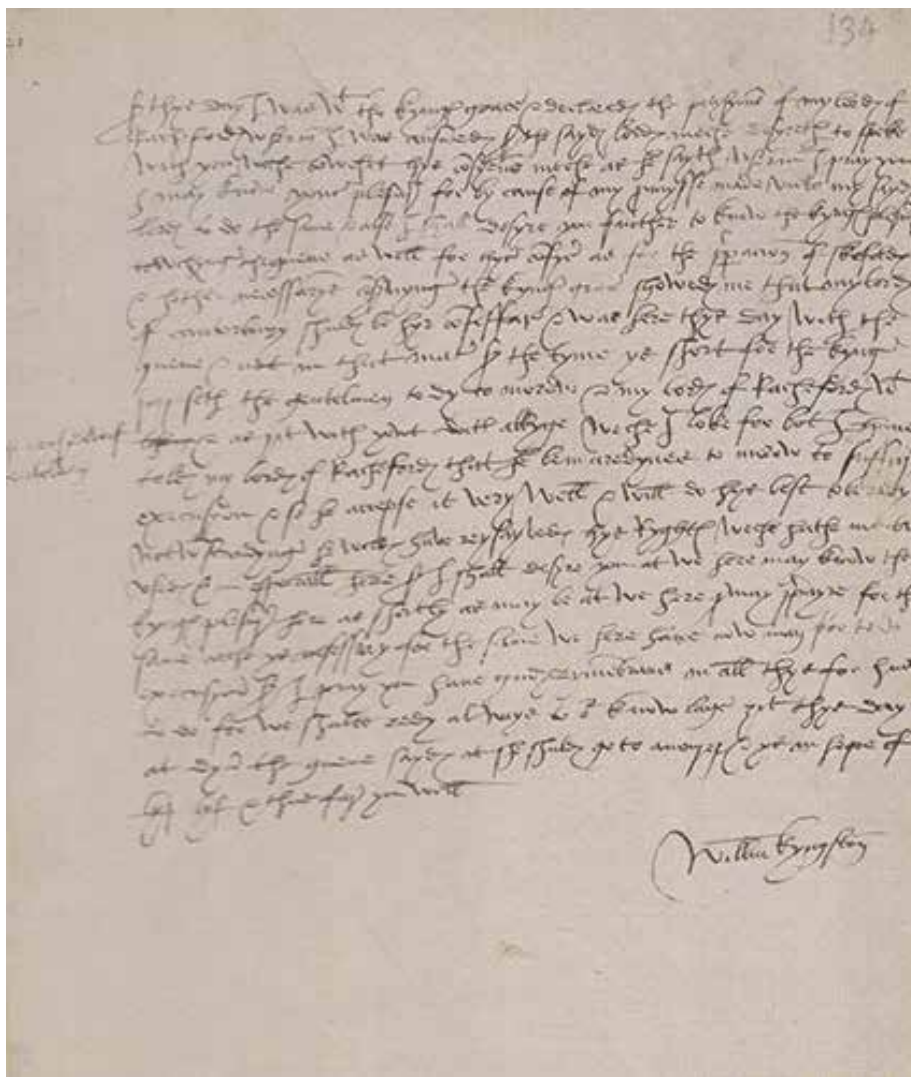 Sr thys day I was wt the kyngs grace & declared the petysyons of my lord of
Rocheford wherin I was answred Sr the sayd lord meche desyreth to speke
with you weche towchet hys consyens meche as he sayth wherin I pray you
I may know your plesur for by cause of my promysse made unto my sayd
lord to do the same & also I shall desyre you further to know the kyngs plesur
towchyng the quene as well for hyr comfyt as for the preparacion of skefolds
& hother necessarys consernyng the kyngs grace showed me that my lord
of cantorbury shuld be hyr confessar & was here thys day with the
quene & not in that mater Sr the tyme ys short for the kyng
supposeth the gentelmen to dy to morow & my lord of Rocheford wt
as yit with owt I loke for bot I have
told my lord of Rocheford that he be in aredynes to morow to suffur
execusyon & so he accepse it very well & will do hys best to be redy
Notwithstandyng he wold have reysayved hys ryghts weche hathe not be
used & in espesiall here Sr I shall desyre you at we here may know the
kyngs plesur here as shortly as may be at we here may prepayre for the
same weche ys necessary for the same we here have now may for to do
execusyon Sr I pray you have gud rymembrans in all thys for hus
to do for we shalbe redy al ways to knowlage yit thys day
at dyner the quene sayd at she shuld go to & ys in hope of
lyf & thus far you well
Willm Kyngston
134